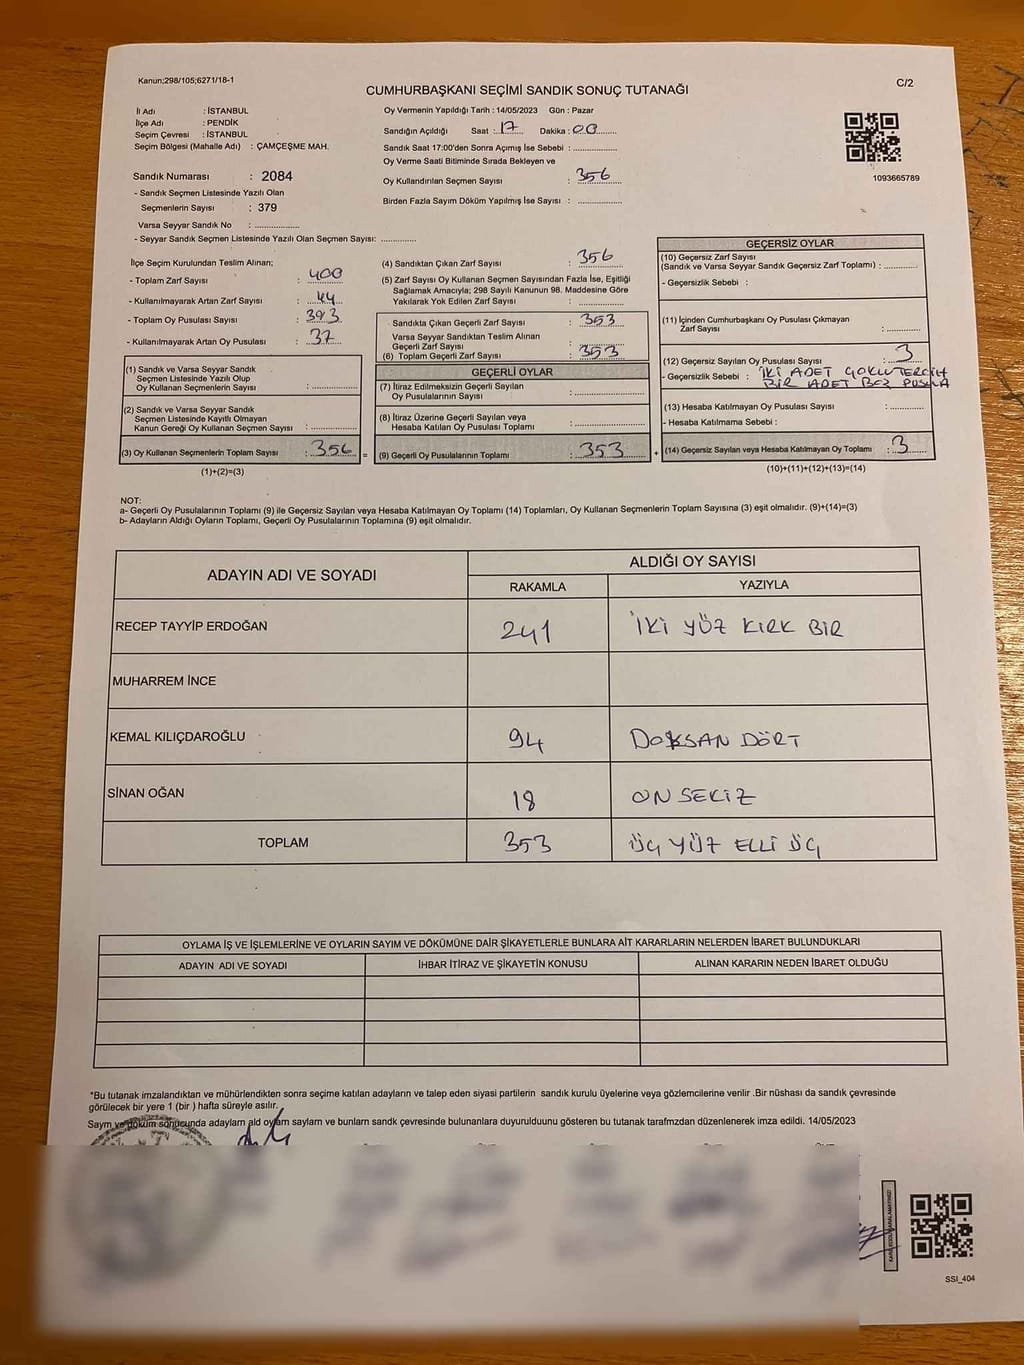 Kanun;298/105;6271/18-1
C/2
CUMHURBAŞKANI SEÇİMİ SANDIK SONUÇ TUTANAĞI
İl Adı : İSTANBUL
İlçe Adı : PENDİK
Seçim Çevresi : İSTANBUL
Seçim Bölgesi (Mahalle Adı) : ÇAMÇEŞME MAH.
Sandık Numarası : 2084
- Sandık Seçmen Listesinde Yazılı Olan
Seçmenlerin Sayısı : 379
Varsa Seyyar Sandık No : ..............
- Seyyar Sandık Seçmen Listesinde Yazılı Olan Seçmen Sayısı: ............
Oy Vermenin Yapıldığı Tarih : 14/05/2023 Gün : Pazar
Sandığın Açıldığı Saat : 17 Dakika : 00
Sandık Saat 17:00'den Sonra Açımış İse Sebebi : ..............
Oy Verme Saati Bitiminde Sırada Bekleyen ve
Oy Kullandırılan Seçmen Sayısı : 356
Birden Fazla Sayım Döküm Yapılmış İse Sayısı : ..............
1093665789
İlçe Seçim Kurulundan Teslim Alınan;
- Toplam Zarf Sayısı : 400
- Kullanılmayarak Artan Zarf Sayısı : 44
- Toplam Oy Pusulası Sayısı : 393
- Kullanılmayarak Artan Oy Pusulası : 37
(1) Sandık ve Varsa Seyyar Sandık
Seçmen Listesinde Yazılı Olup
Oy Kullanan Seçmenlerin Sayısı : ..............
(2) Sandık ve Varsa Seyyar Sandık
Seçmen Listesinde Kayıtlı Olmayan
Kanun Gereği Oy Kullanan Seçmen Sayısı : ..............
(3) Oy Kullanan Seçmenlerin Toplam Sayısı : 356 =
(1)+(2)=(3)
(4) Sandıktan Çıkan Zarf Sayısı : 356
(5) Zarf Sayısı Oy Kullanan Seçmen Sayısından Fazla İse, Eşitliği
Sağlamak Amacıyla; 298 Sayılı Kanunun 98. Maddesine Göre
Yakılarak Yok Edilen Zarf Sayısı : ..............
Sandıkta Çıkan Geçerli Zarf Sayısı : 353
Varsa Seyyar Sandıktan Teslim Alınan
Geçerli Zarf Sayısı : ..............
(6) Toplam Geçerli Zarf Sayısı : 353
GEÇERLİ OYLAR
(7) İtiraz Edilmeksizin Geçerli Sayılan
Oy Pusulalarının Sayısı : ..............
(8) İtiraz Üzerine Geçerli Sayılan veya
Hesaba Katılan Oy Pusulası Toplamı : ..............
(9) Geçerli Oy Pusulalarının Toplamı : 353 +
GEÇERSİZ OYLAR
(10) Geçersiz Zarf Sayısı
(Sandık ve Varsa Seyyar Sandık Geçersiz Zarf Toplamı) : ............
- Geçersizlik Sebebi :
(11) İçinden Cumhurbaşkanı Oy Pusulası Çıkmayan
Zarf Sayısı : ............
(12) Geçersiz Sayılan Oy Pusulası Sayısı : 3
- Geçersizlik Sebebi : İKİ ADET ÇOKLU TERCİH
BİR ADET BOŞ PUSULA
(13) Hesaba Katılmayan Oy Pusulası Sayısı : ............
- Hesaba Katılmama Sebebi :
(14) Geçersiz Sayılan veya Hesaba Katılmayan Oy Toplamı : 3
(10)+(11)+(12)+(13)=(14)
NOT:
a- Geçerli Oy Pusulalarının Toplamı (9) ile Geçersiz Sayılan veya Hesaba Katılmayan Oy Toplamı (14) Toplamları, Oy Kullanan Seçmenlerin Toplam Sayısına (3) eşit olmalıdır. (9)+(14)=(3)
b- Adayların Aldığı Oyların Toplamı, Geçerli Oy Pusulalarının Toplamına (9) eşit olmalıdır.
ADAYIN ADI VE SOYADI
ALDIĞI OY SAYISI
RAKAMLA YAZIYLA
RECEP TAYYİP ERDOĞAN 241 İKİ YÜZ KIRK BİR
MUHARREM İNCE
KEMAL KILIÇDAROĞLU 94 DOKSAN DÖRT
SİNAN OĞAN 18 ON SEKİZ
TOPLAM 353 ÜÇ YÜZ ELLİ ÜÇ
OYLAMA İŞ VE İŞLEMLERİNE VE OYLARIN SAYIM VE DÖKÜMÜNE DAİR ŞİKAYETLERLE BUNLARA AİT KARARLARIN NELERDEN İBARET BULUNDUKLARI
ADAYIN ADI VE SOYADI İHBAR İTİRAZ VE ŞİKAYETİN KONUSU ALINAN KARARIN NEDEN İBARET OLDUĞU
*Bu tutanak imzalandıktan ve mühürlendikten sonra seçime katılan adayların ve talep eden siyasi partilerin sandık kurulu üyelerine veya gözlemcilerine verilir .Bir nüshası da sandık çevresinde
görülecek bir yere 1 (bir ) hafta süreyle asılır.
Sayım ve döküm sonucunda adaylam ald oylam saylam ve bunlarm sandk çevresinde bulunanlara duyurulduunu gösteren bu tutanak tarafmzdan düzenlenerek imza edildi. 14/05/2023
SSI_404